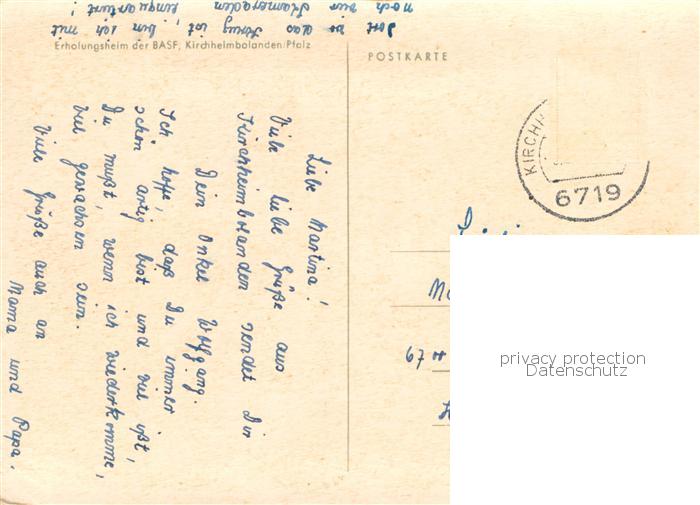 Dort wo das Kreuz ist, bin ich mit
noch vier Kameraden einquartiert!
Erholungsheim der BASF, Kirchheimbolanden/Pfalz
POSTKARTE
KIRCHH
6719
Liebe Martina!
Viele liebe Grüße aus
Kirchheimbolanden sendet Dir
Dein Onkel Wolfgang.
Ich hoffe, daß Du immer
schön artig bist und viel ißt,
Du mußt, wenn ich wiederkomme,
viel gewachsen sein.
Viele Grüße auch an
Mama und Papa.
67
privacy protection
Datenschutz